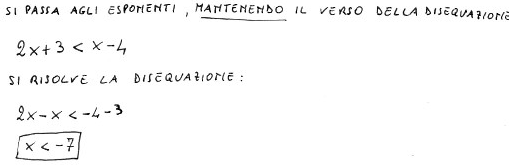 SI PASSA AGLI ESPONENTI, MANTENENDO IL VERSO DELLA DISEQUAZIONE
2x+3 < x-4
SI RISOLVE LA DISEQUAZIONE:
2x-x < -4-3
x < -7